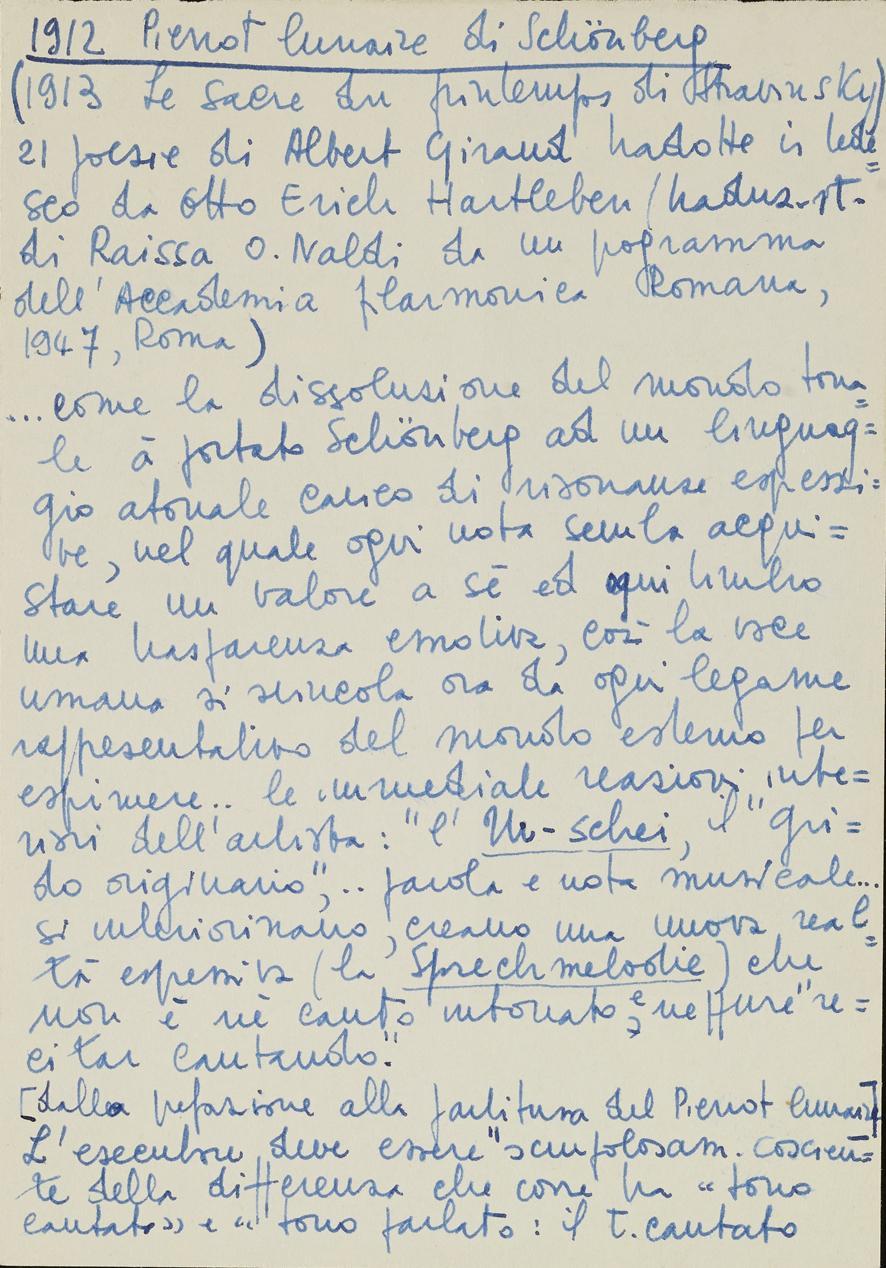 1912 Pierrot lunaire di Schönberg
(1913 Le Sacre du printemps di Stravinsky)
21 poesie di Albert Giraud tradotte in tede=
sco da Otto Erich Hartleben (traduz. it.
di Raissa O. Naldi da un programma
dell'Accademia filarmonica Romana,
1947, Roma)
...come la dissoluzione del mondo tona=
le à portato Schönberg ad un linguag=
gio atonale carico di risonanze espressi=
ve, nel quale ogni nota sembra acqui=
stare un valore a sé ed ogni timbro
una trasparenza emotiva, così la voce
umana si svincola ora da ogni legame
rappresentativo del mondo esterno per
esprimere.. le immediate reazioni inte=
riori dell'artista: "l' Ur-schrei, il "gri=
do originario",.. parola e nota musicale...
si interiorizzano, creano una nuova real=
tà espressiva (la Sprechmelodie) che
non è nè canto intonato e neppure "re=
citar cantando."
[dalla prefazione alla partitura del Pierrot lunaire]
L'esecutore deve essere "scrupolosam. coscien=
te della differenza che corre tra "tono
cantato" e "tono parlato: il t. cantato